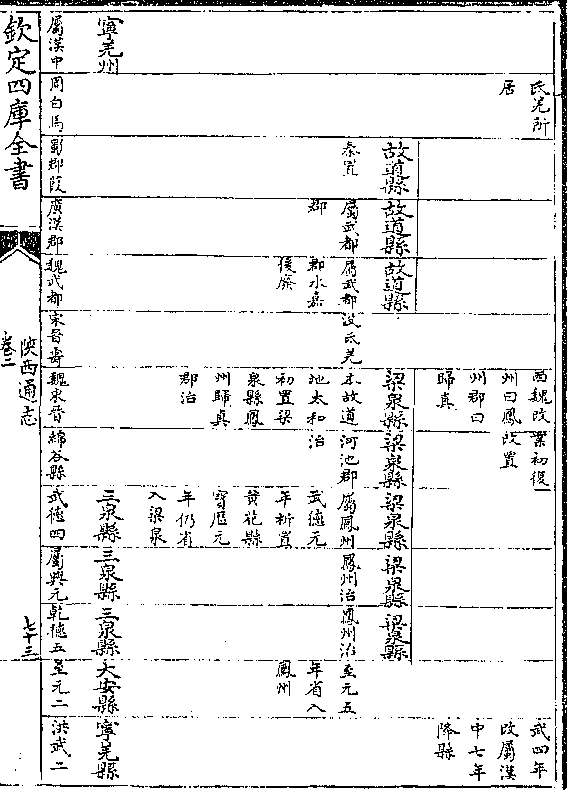 氐羌所
居
西魏改
州曰鳳
州郡曰
歸真
業初復
改置
武四年
改屬漢
中七年
降縣
故道縣
秦置
故道縣
屬武都
郡
故道縣
屬武都
郡永嘉
後廢
没氐羌
梁泉縣
本故道
地太和
初置梁
泉縣鳳
州歸真
郡治
梁泉縣
河池郡
治
梁泉縣
屬鳳州
武德元
年析置
黄花縣
寳歴元
年仍省
入梁泉
梁泉縣
鳳州治
梁泉縣
鳳州治
至元五
年省入
鳳州
寧羌州
屬漢中
周白馬
蜀郡葭
廣漢郡
魏武都
宋晉壽
魏東晉
綿谷縣
三泉縣
武德四
三泉縣
屬興元
三泉縣
乾德五
大安縣
至元二
寧羌縣
洪武二
欽定四庫全書
陜西通志
卷三
七十三